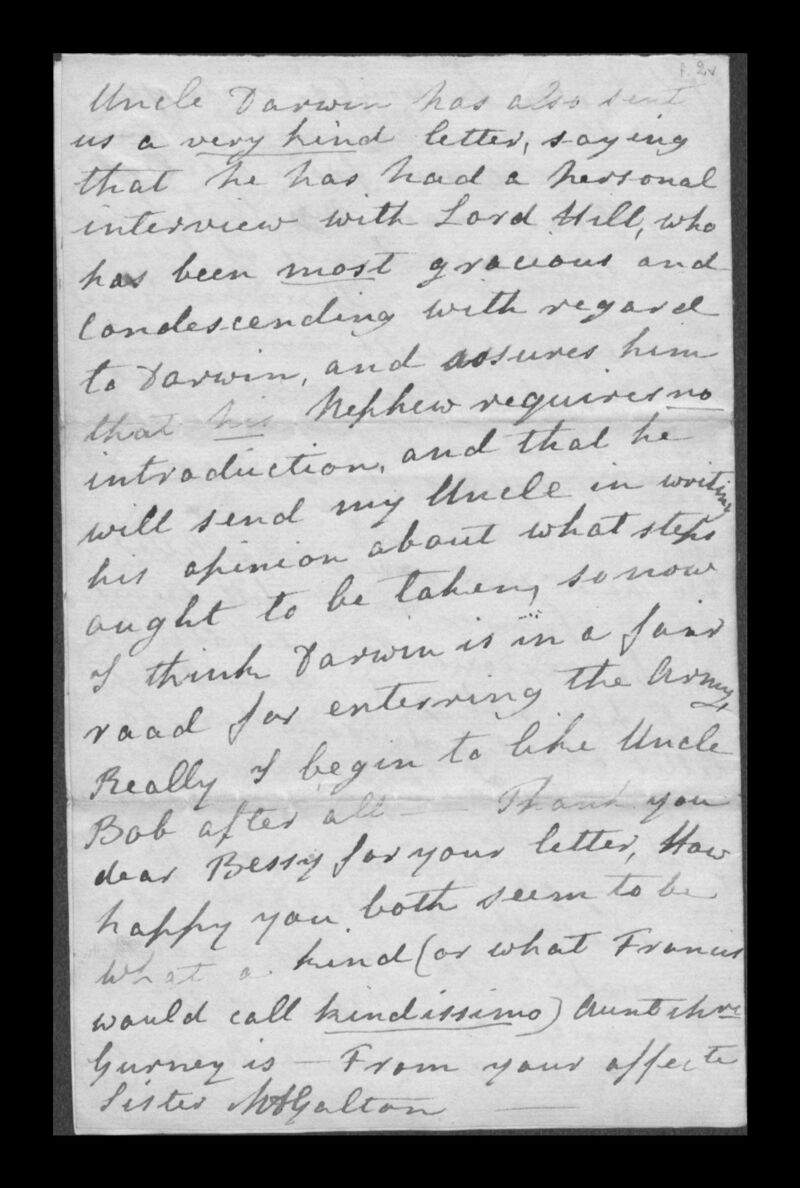 f. 2v
Uncle Darwin has also sent
us a very kind letter, saying
that he has had a personal
interview with Lord Hill, who
has been most gracious and
Condescending with regard
to Darwin, and assures him
that his Nephew requires no
introduction, and that he
will send my Uncle in writing
his opinion about what steps
ought to be taken, so now
I think Darwin is in a fair
road for enterring the Army,
Really I begin to like Uncle
Bob after all — Thank you
dear Bessy for your letter, How
happy you both seem to be
what a kind (or what Francis
would call kindissimo) Aunt Mrs
Gurney is — From your affecte
Sister MAGalton —